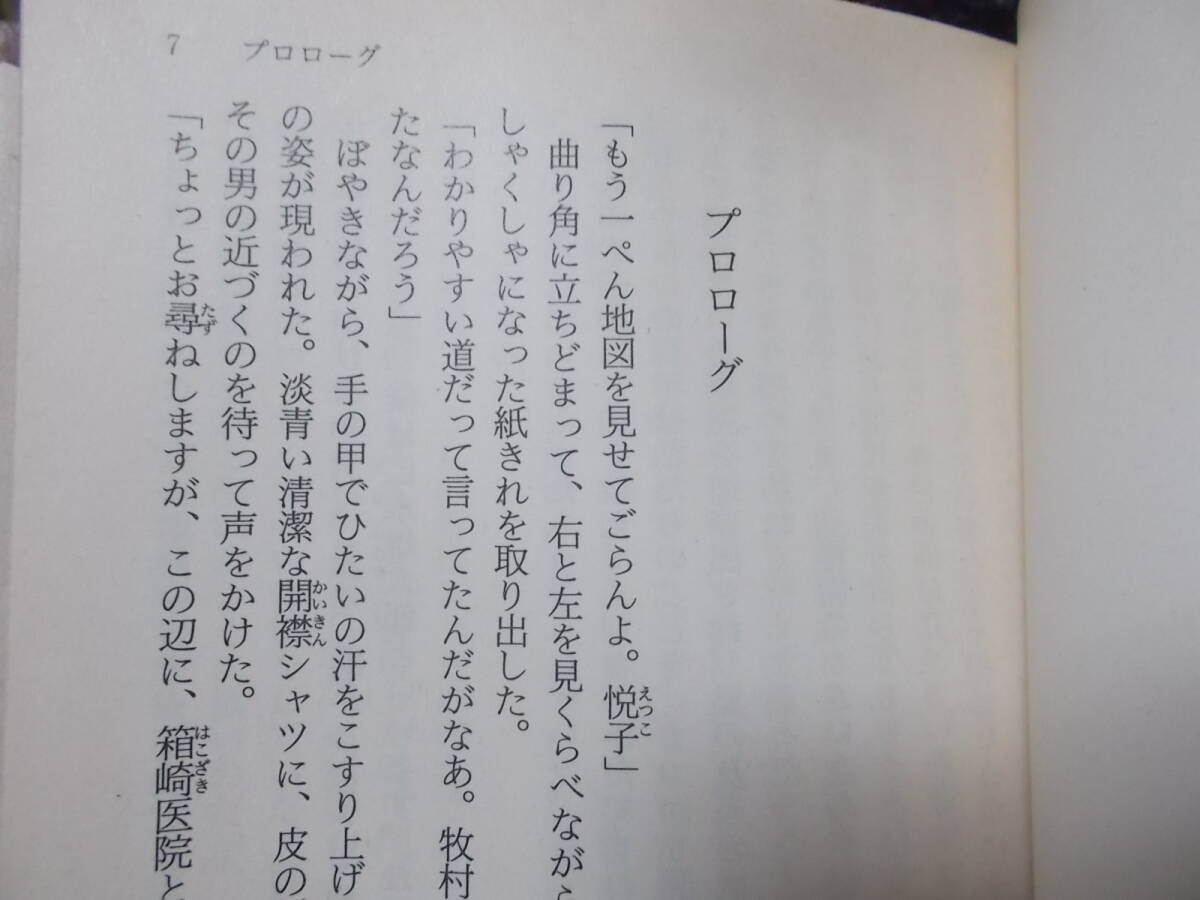 7 プロローグ
プロローグ
「もう一ぺん地図を見せてごらんよ。悦子」
えつこ
曲り角に立ちどまって、右と左を見くらべながら
しゃくしゃになった紙きれを取り出した。
「わかりやすい道だって言ってたんだがなあ。牧村
たなんだろう」
ぼやきながら、手の甲でひたいの汗をこすり上げ
の姿が現われた。淡青い清潔な開襟シャツに、皮の
かいきん
その男の近づくのを待って声をかけた。
「ちょっとお尋ねしますが、この辺に、箱崎医院と
たず
はこざき